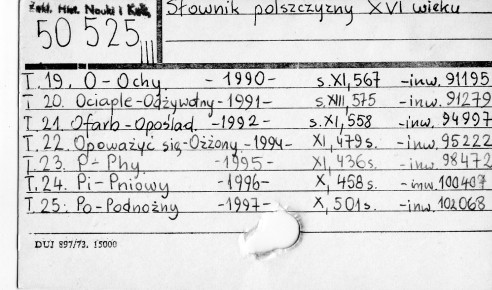 Zakł. Hist. Nauki i
Słownik polszczyzny XVI wieku
50 525
T. 19. O-Ochy -1990- s. XI, 567 -inw. 91195
T 20. Ociąple-Odżywotny -1991- s. XIII, 575 -inw. 91279
T 21. Ofarb-Opoślad. -1992- s. XI, 558 -inw. 94997
T. 22. Opoważyć się-Ożżony -1994- XI, 479 s. -inw. 95222
T. 23. P-Phy -1995- XI, 436 s. -inw. 98472
T. 24. Pi-Pniowy -1996- X, 458 s. -inw. 100407
T. 25: Po-Podnożny -1997- X, 501 s. -inw. 102068
DUJ 897/73. 15000